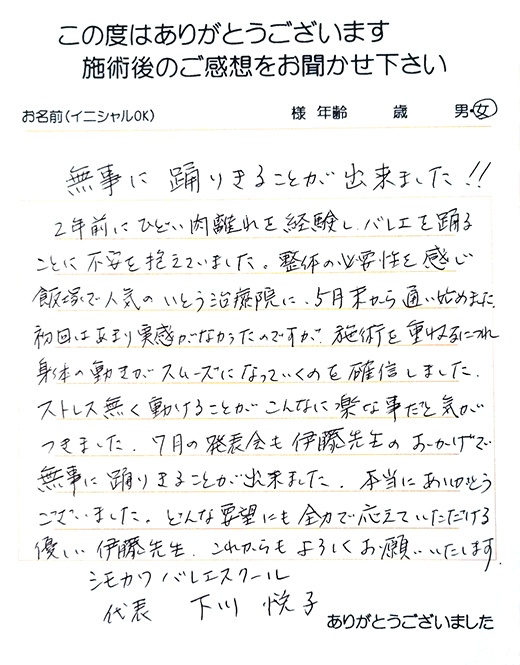 この度はありがとうございます
施術後のご感想をお聞かせ下さい
お名前(イニシャルOK) 様 年齢 歳 男・女
無事に 踊りきることが 出来ました!!
2年前に ひどい肉離れを経験し、バレエを踊る
ことに 不安を抱えていました。整体の必要性を感じ
飯塚で人気の いとう治療院に、5月末から通い始めました
初回はあまり実感がなかったのですが、施術を重ねるにつれ
身体の動きがスムーズになっていくのを確信しました。
ストレス無く動けることがこんなに楽な事だと気が
つきました。7月の発表会も伊藤先生のおかげで
無事に踊りきることが出来ました。本当にありがとう
ございました。どんな要望にも全力で応えていただける
優しい伊藤先生、これからもよろしくお願いいたします。
シモカワ バレエスクール
代表 下川 悦子
ありがとうございました